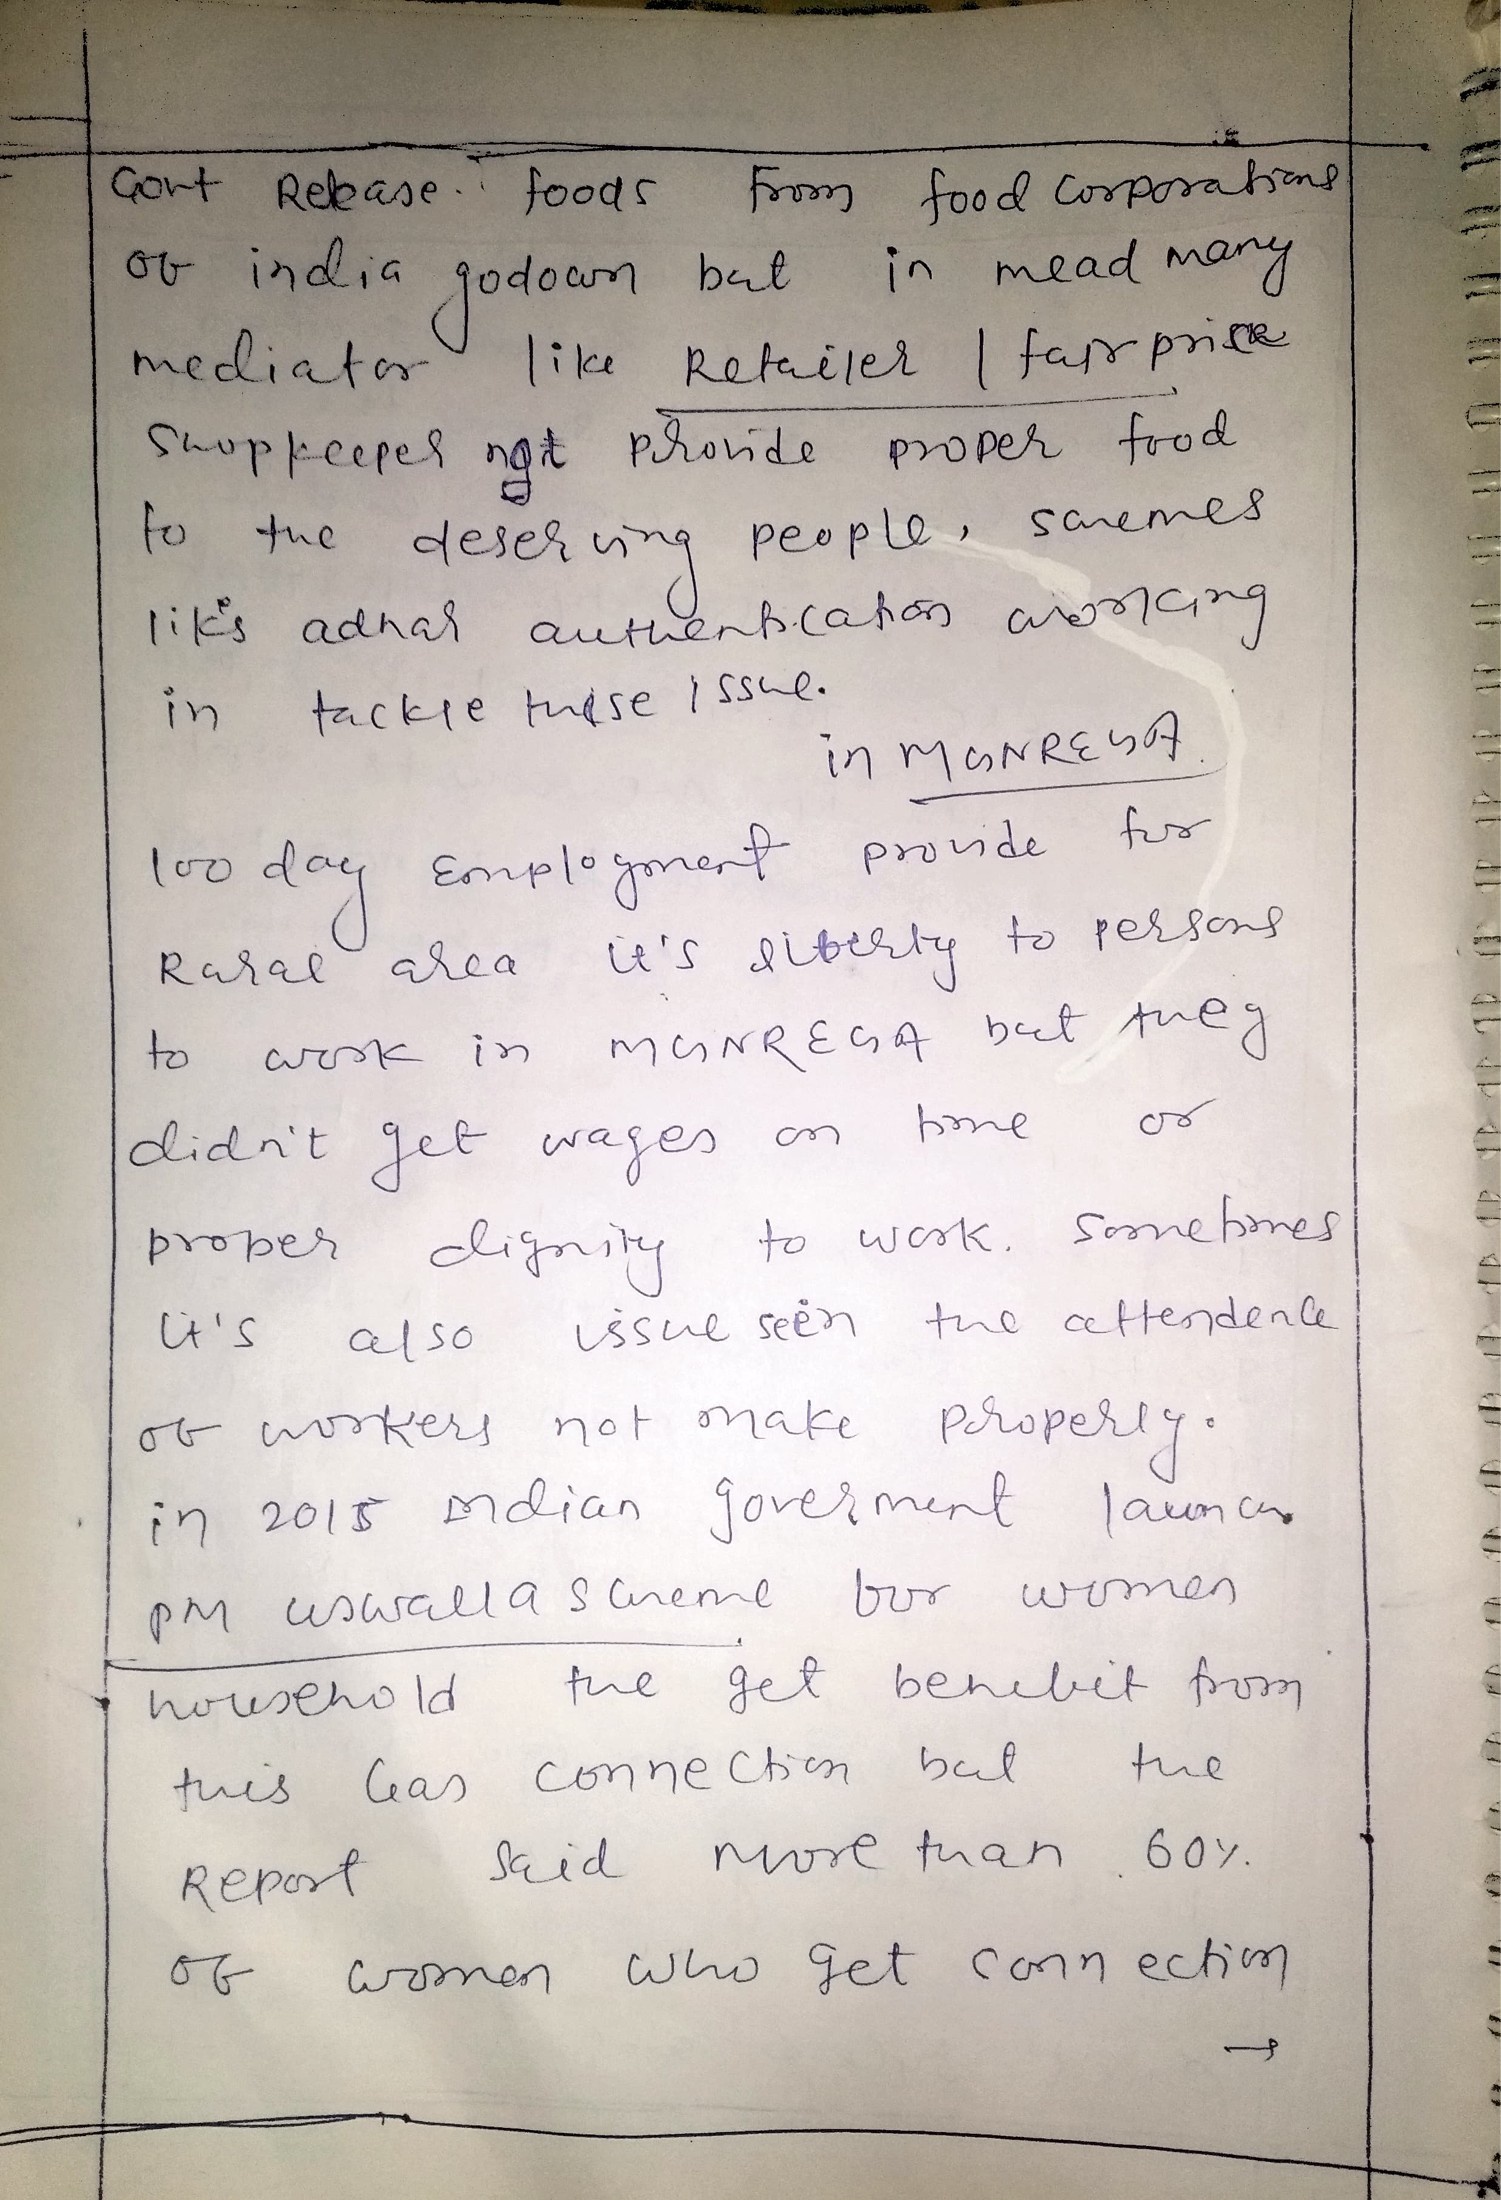 Govt Release foods from food corporations
of india godown but in mead many
mediator like Retailer / fair price
Shopkeeper not provide proper food
to the deserving people, schemes
like adhar authentication working
in tackle these issue.
in MGNREGA.
100 day Employment provide for
Rural area it's liberty to persons
to work in MGNREGA but they
didn't get wages on time or
proper dignity to work. Sometimes
it's also issue seen the attendence
of workers not make properly.
in 2015 indian goverment launch
PM uswalla scheme for women
household the get benefit from
this Gas connection but the
Report Said more than 60%.
of women who get connection
→